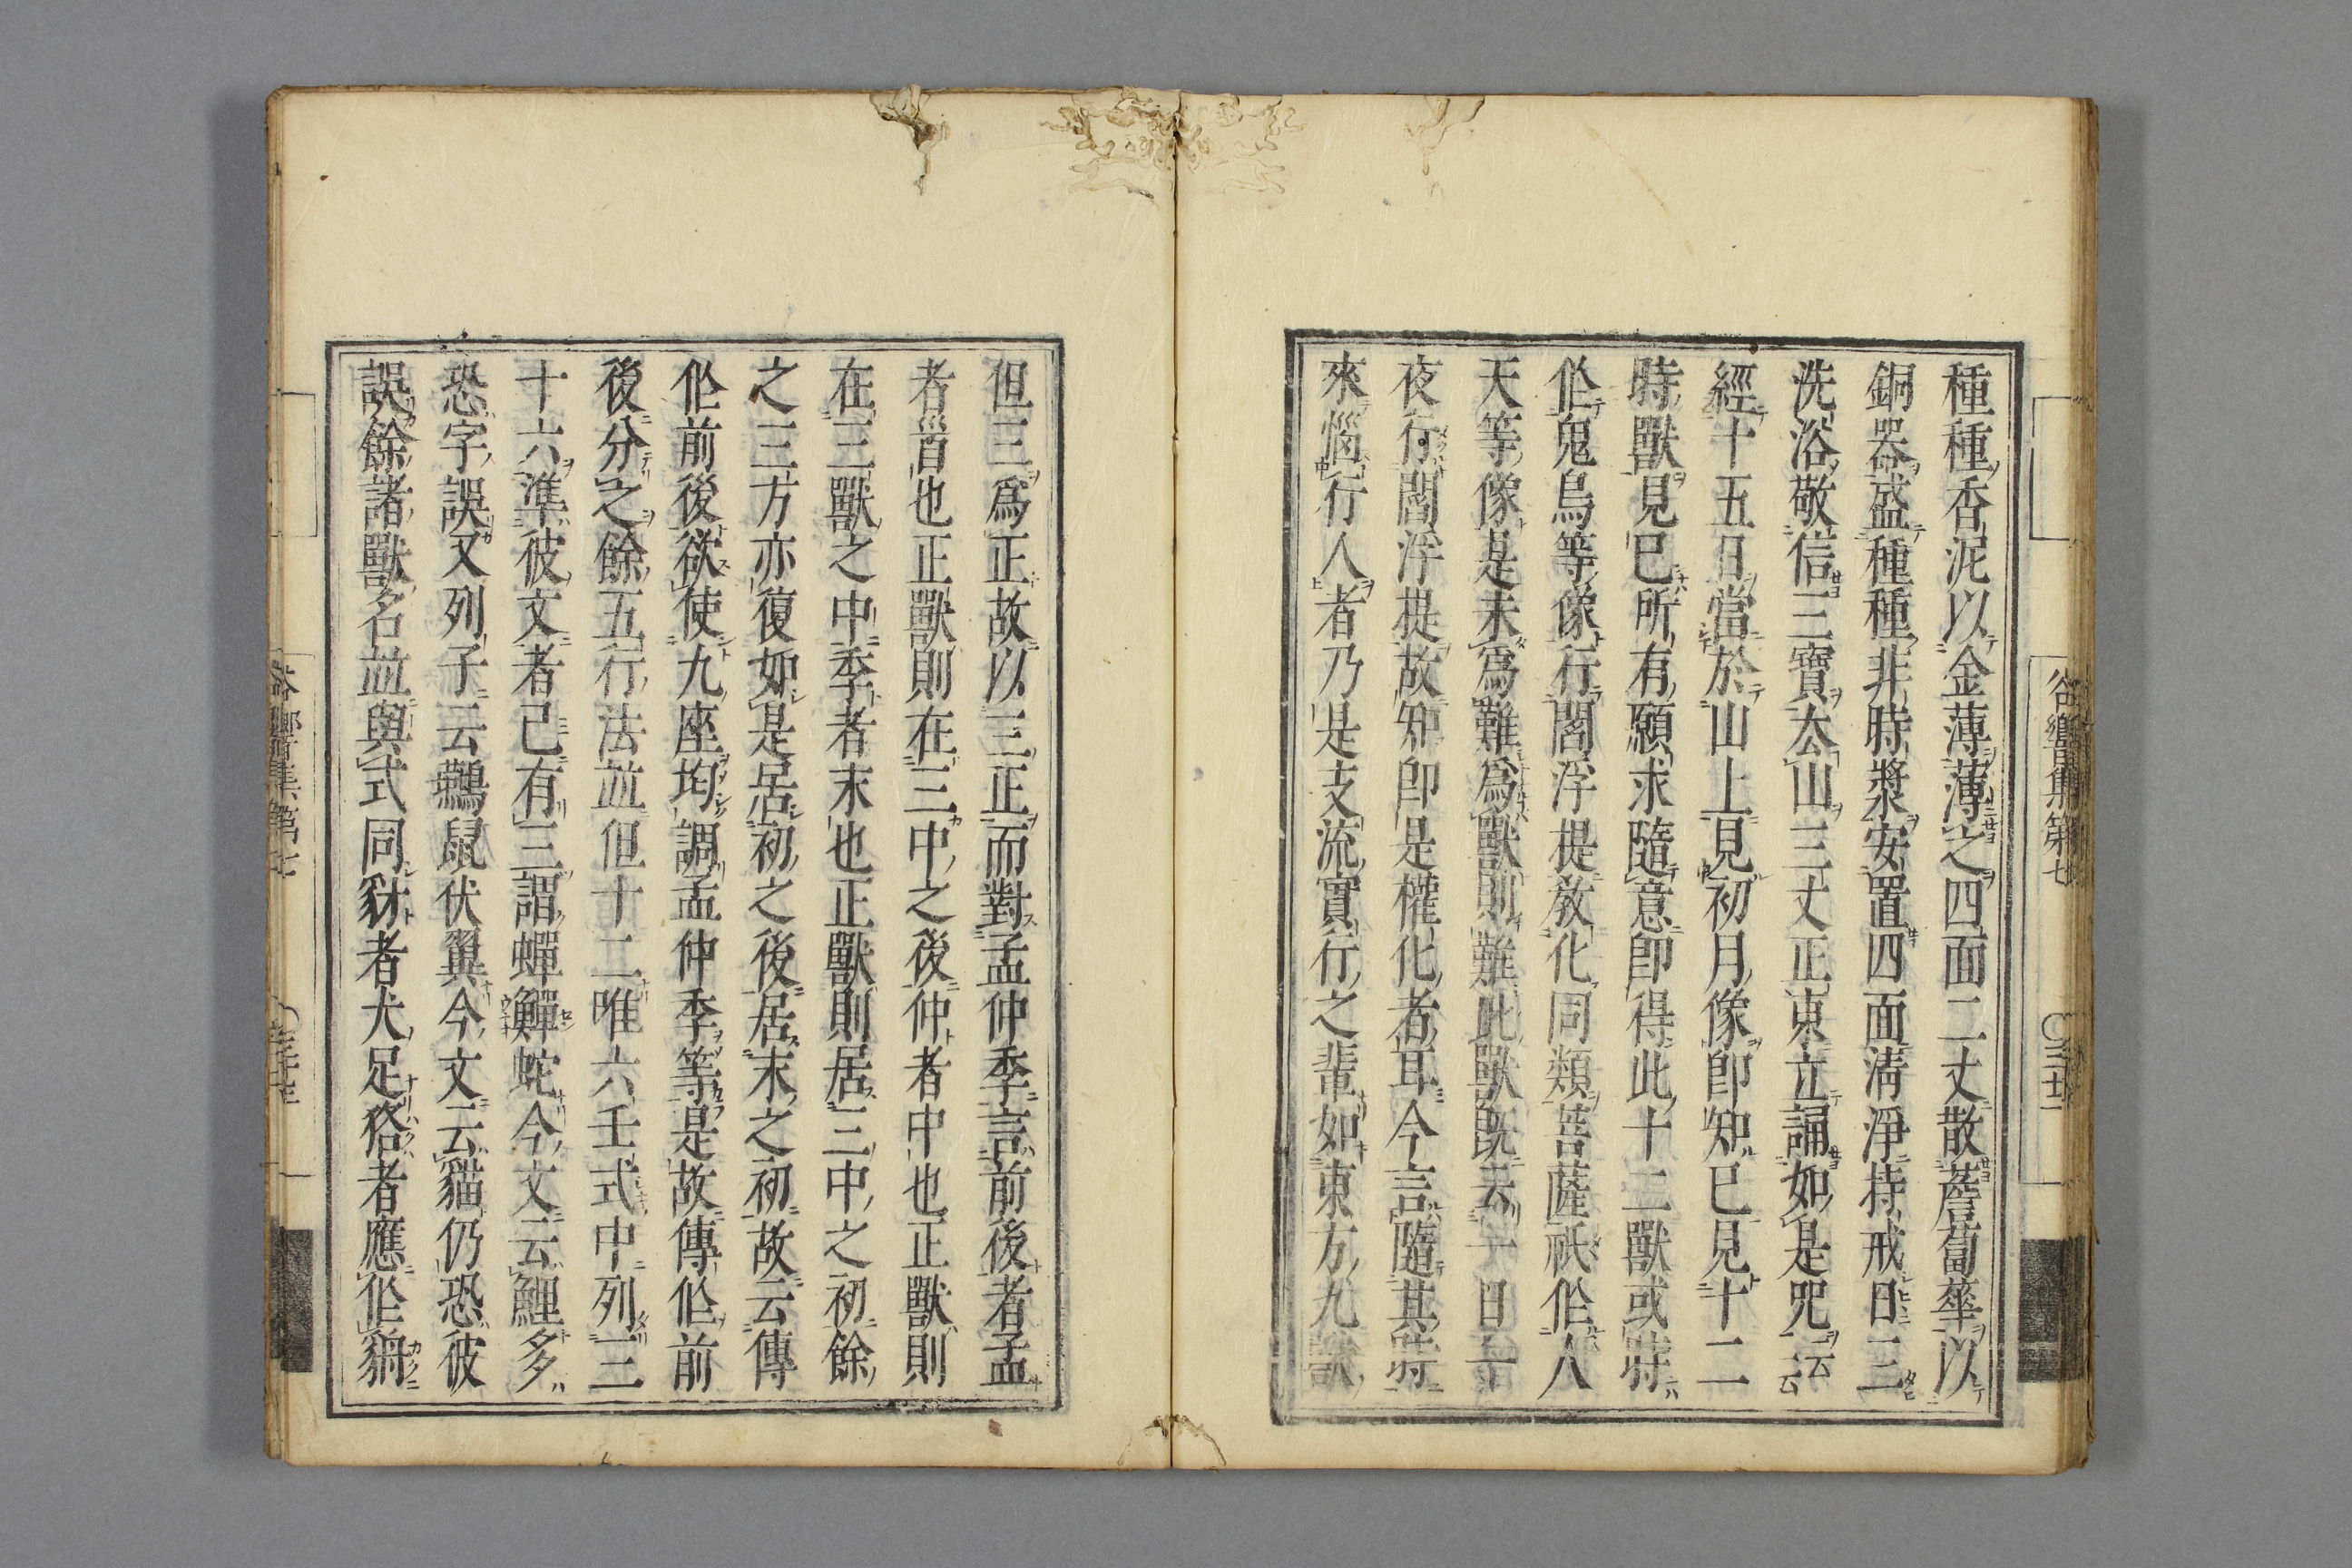 種種香泥以金薄薄之四面二丈散薝蔔華以
銅器盛種種非時漿安置四面清淨持戒日三
洗浴敬信三寶厺山三丈正東立誦如是咒云云
經十五日當於山上見初月像卽知巳見十二
時獸見巳所有願求隨意卽得此十二獸或時
作鬼鳥等像行閻浮提教化同類菩薩祇作人
天等像是未爲難爲獸則難此獸旣去一日一
夜行閻浮提故知卽是權化者耳今言隨其時
來惱行人者乃是支流實行之輩如東方九獸
但三爲正故以三正而對孟仲季言前後者孟
者首也正獸則在三中之後仲者中也正獸則
在三獸之中季者末也正獸則居三中之初餘
之三方亦復如是居初之後居末之初故云傳
作前後欲使九座均調孟仲季等是故傳作前
後分之餘五行法並但十二唯六壬式中列三
十六準彼文者已有三謂蟬鱓蛇今文云鯉多
恐字誤又列子云鷰鼠伏翼今文云貓仍恐彼
誤餘諸獸名並與式同豺者犬足狢者應作貈
谷響集第七